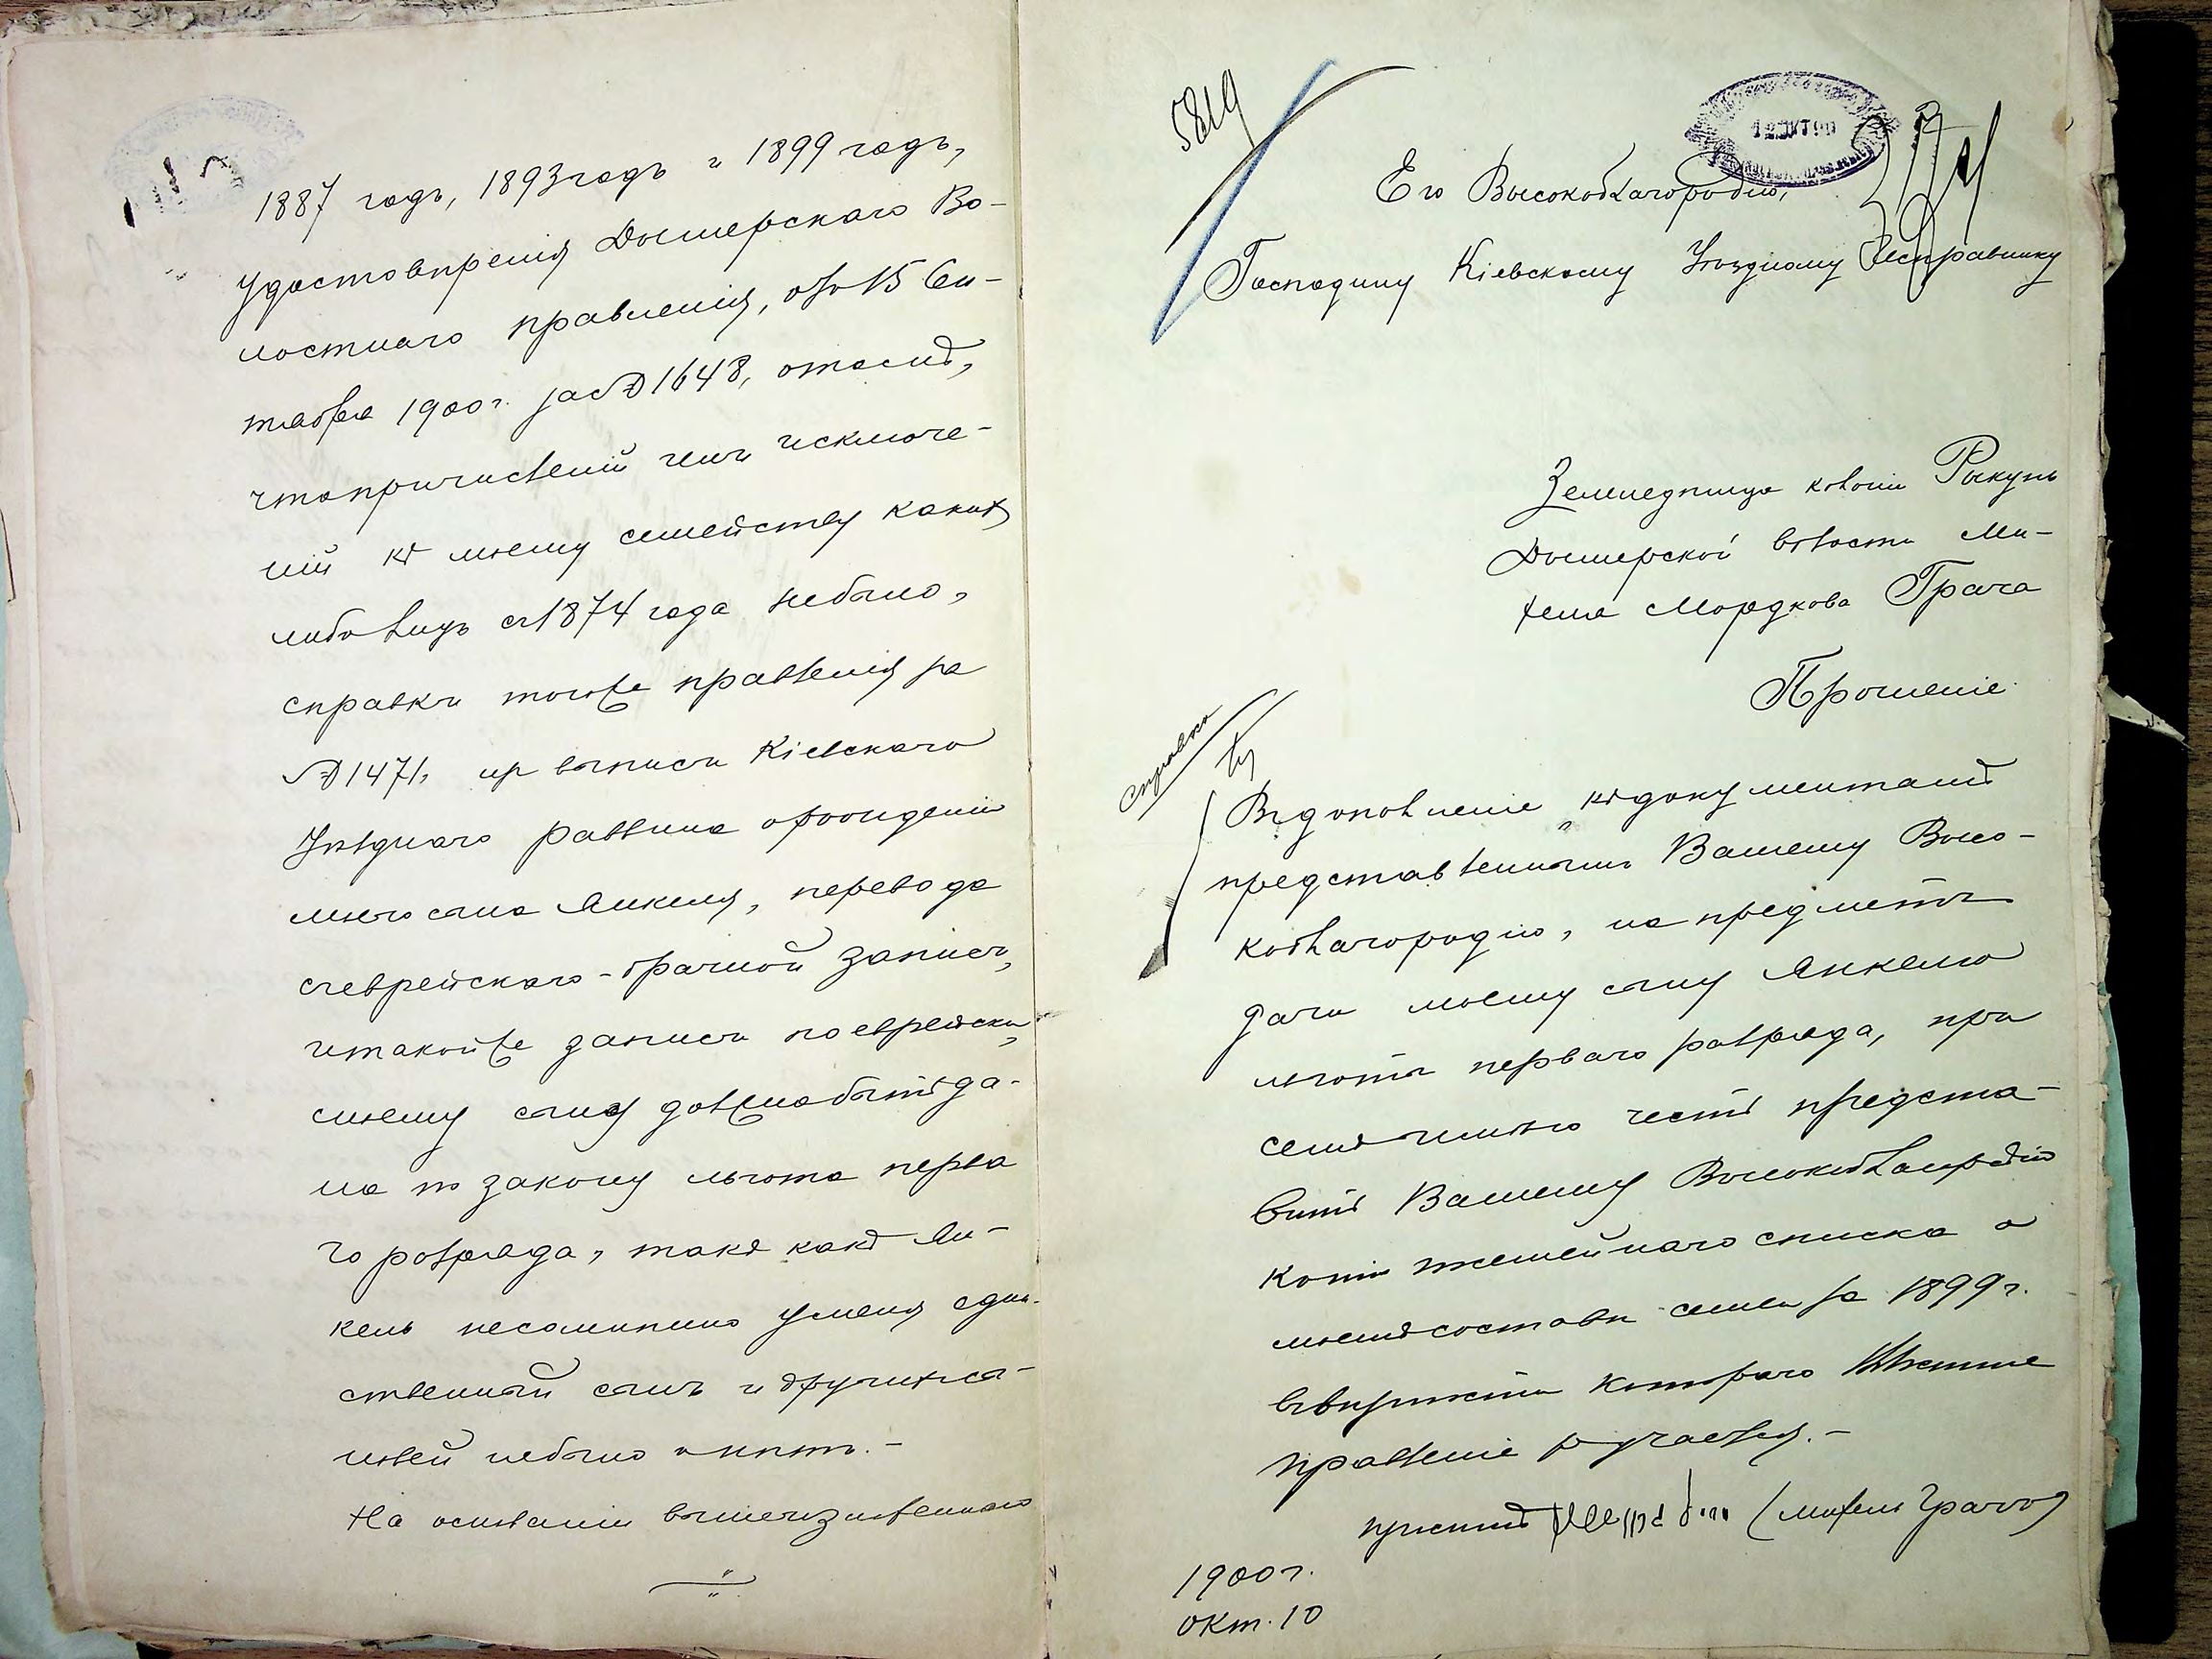 1887 годъ, 1893 годъ и 1899 годъ,
удостовѣренія Дымерскаго Во-
лостнаго правленія, отъ 15 Сен-
тября 1900 г. за № 1648, отомъ,
что причисленій или исключе-
ній къ моему семейству какихъ
либо лицъ съ 1874 года небыло,
справки тогоже правленія за
№ 1471, изъ выписи Кіевскаго
Уѣзднаго раввина орожденіи
моего сына Янкеля, перевода
съеврейскаго-брачной записи,
итакойже записи поеврейски,
смоему сыну должнабыть да-
на по закону льгота перва
го разряда, такъ какъ Ян-
кель несомнѣнно уменя един-
ственный сынъ и другихъсы-
новей небыло и нѣтъ.-
На основаніи вышеизложеннаго
5819
12 ОКТ 90
Его Высокоблагородію,
Господину Кіевскому Уѣздному Исправнику
Земледѣльца колоніи Рыкунь
Дымерской волости Ми-
хеля Мордкова Грача
Прошеніе
справка
Въдополненіе къдокументамъ
представленнымъ Вашему Высо-
коблагородію, на предметъ
дачи моему сыну Янкелю
льготы перваго разряда, при
семъ имѣю честь предста-
вить Вашему Высокоблагородію
копію посемейнаго списка о
моемъ составѣ семьи за 1899 г.
въвѣрности котораго
правленіе ручается.-
(михель Грачъ)
1900 г.
окт. 10